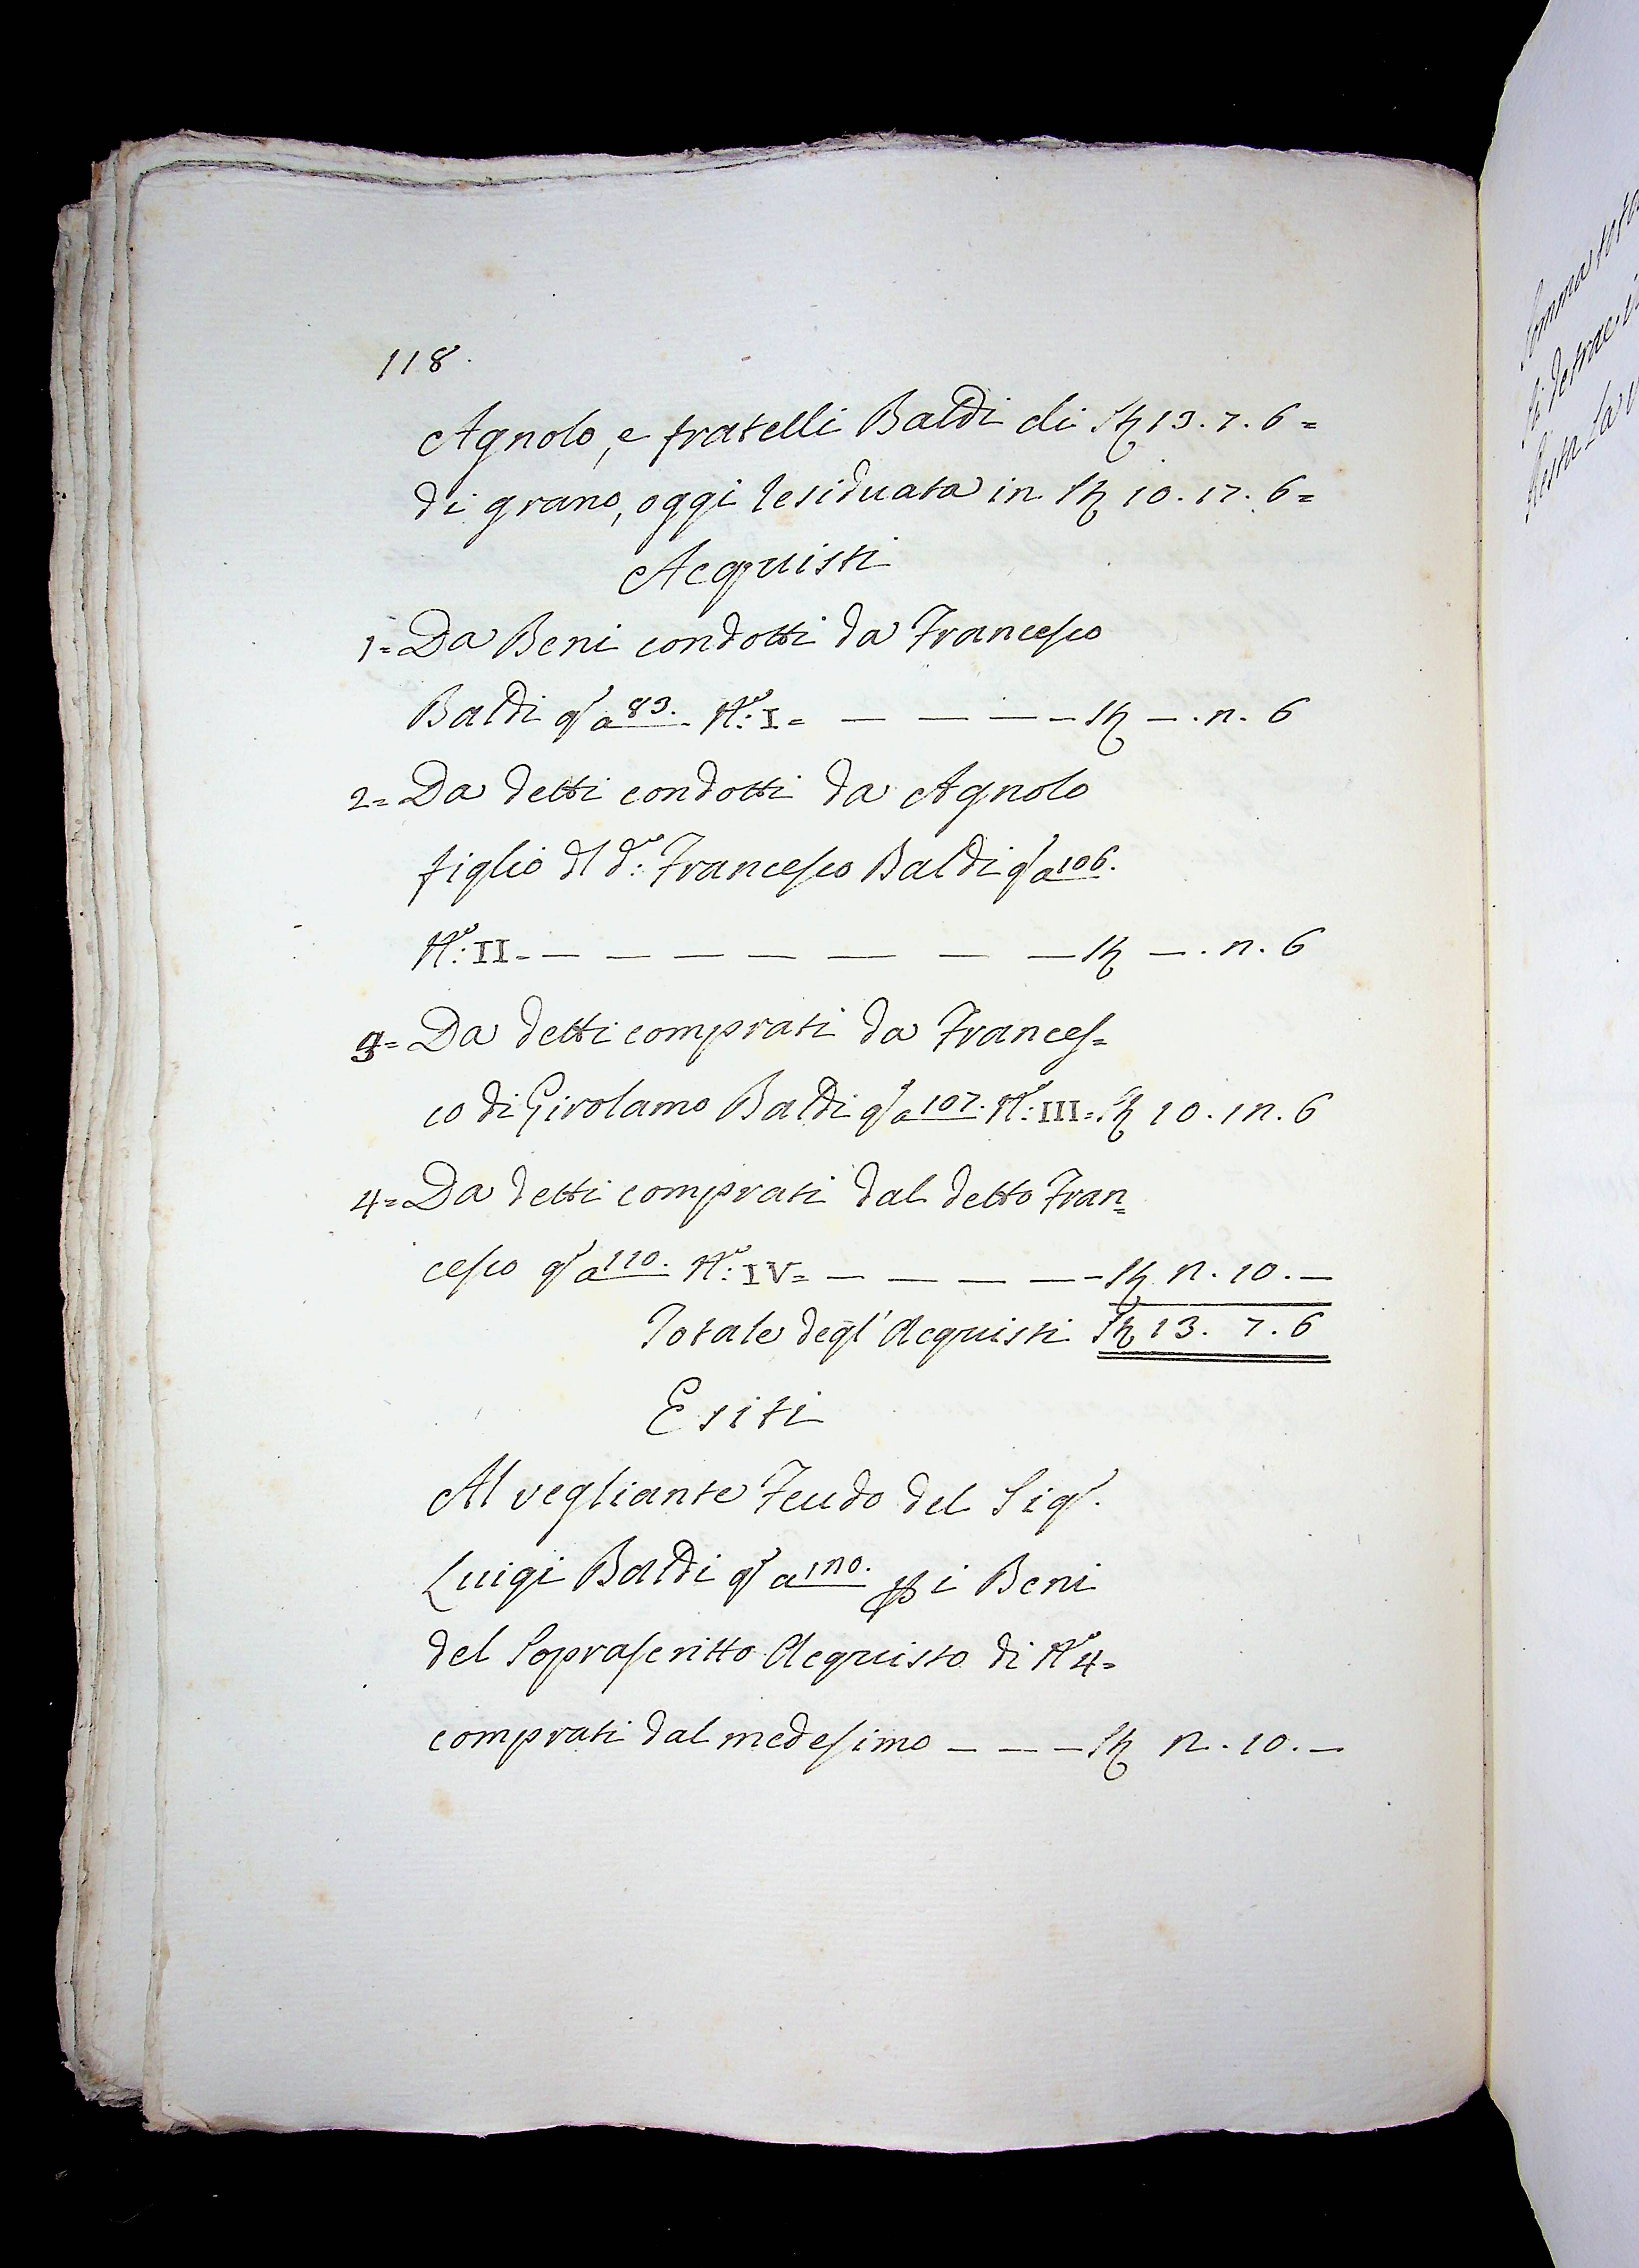 118.
Agnolo, e fratelli Baldi di St 13. 7. 6=
di grano, oggi residuata in St 10. 17. 6=
Acquisti
1= Da Beni condotti da Francesco
Baldi qr a 83. No: I= — — — — St —. 2. 6
2= Da detti condotti da Agnolo
figlio dl do: Francesco Baldi qr a 106.
No: II= — — — — — — — St —. 2. 6
3= Da detti comprati da Frances=
co di Girolamo Baldi qr a 107. No: III= St 10. 12. 6
4= Da detti comprati dal detto Fran=
cesco qr a 110. No: IV= — — — — St 2. 10. —
Totale degl'Acquisti St 13. 7. 6
Esiti
Al vegliante Feudo del Sigr.
Luigi Baldi qr a 120. p i Beni
del Soprascritto Acquisto di No 4=
comprati dal medesimo — — — St 2. 10. —
Somma tota
Si detrae i
Resta la